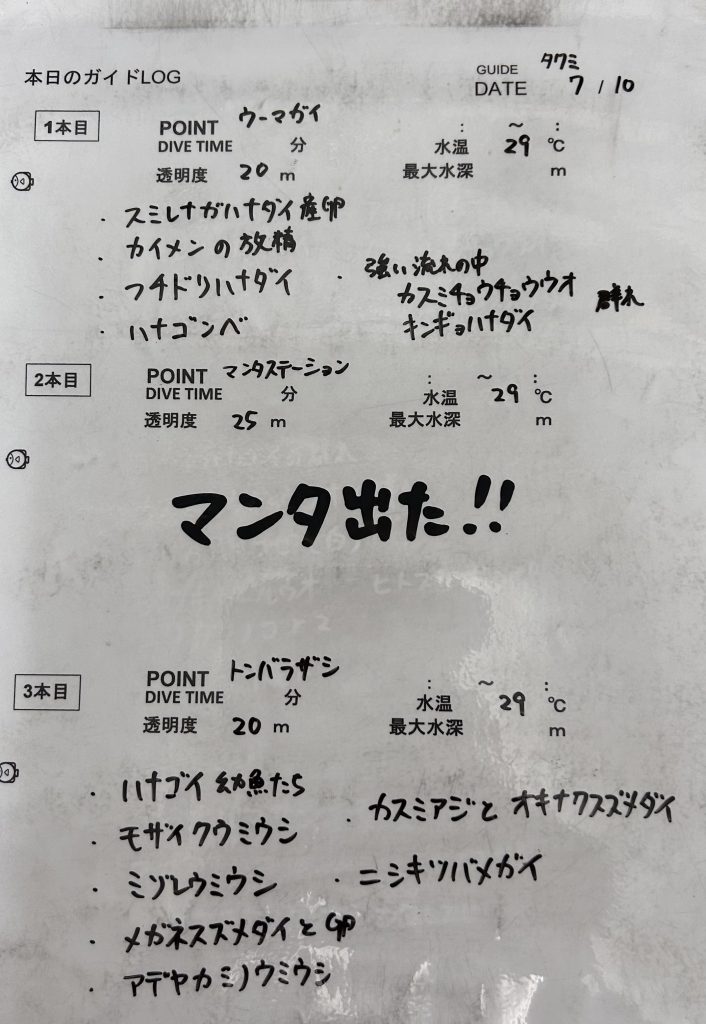 本日のガイドLOG
GUIDE タクミ
DATE 7 / 10
1本目
POINT ウーマガイ
DIVE TIME 分 : ～ :
水温 29 ℃
透明度 20 m 最大水深 m
・スミレナガハナダイ産卵
・カイメンの放精
・フチドリハナダイ
・ハナゴンベ
・強い流れの中
カスミチョウチョウウオ
キンギョハナダイ
群れ
2本目
POINT マンタステーション
DIVE TIME 分 : ～ :
水温 29 ℃
透明度 25 m 最大水深 m
マンタ出た!!
3本目
POINT トンバラザシ
DIVE TIME 分 : ～ :
水温 29 ℃
透明度 20 m 最大水深 m
・ハナゴイ幼魚たち
・モザイクウミウシ
・ミゾレウミウシ
・メガネスズメダイと卵
・アデヤカミノウミウシ
・カスミアジとオキナワスズメダイ
・ニシキツバメガイ